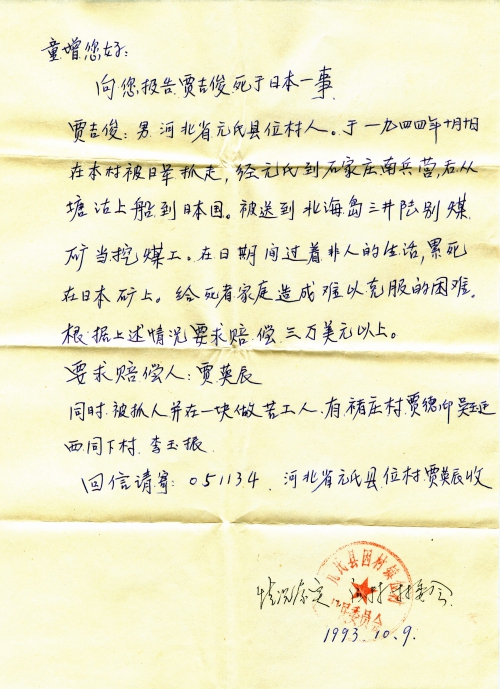 童增您好:
向您报告贾吉俊死于日本一事
贾吉俊:男,河北省元氏县位村人。于一九四四年十月十日
在本村被日军抓走,经元氏到石家庄南兵营,后从
塘沽上船到日本国。被送到北海岛三井陆别煤
矿当挖煤工。在日期间过着非人的生活,累死
在日本矿上。给死者家庭造成难以克服的困难。
根据上述情况要求赔偿三万美元以上。
要求赔偿人:贾英辰
同时被抓人并在一块做苦工人,有褚庄村贾德印
西同下村 李玉振
回信请寄:051134 河北省元氏县位村贾英辰收
情况属实
村委会
元氏县因村镇
委员会
1993.10.9.